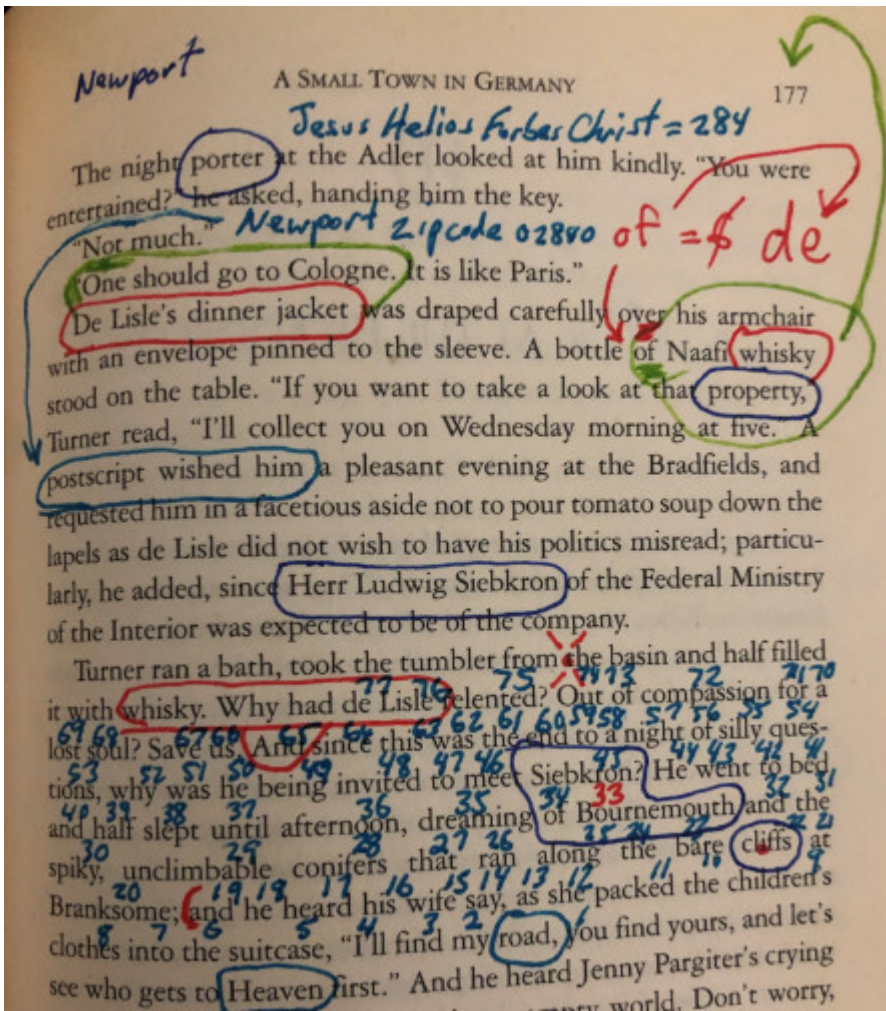 Newport
A SMALL TOWN IN GERMANY
177
Jesus Helios Forbes Christ = 284
The night porter at the Adler looked at him kindly. "You were
entertained?" he asked, handing him the key.
"Not much."
Newport Zipcode 02840
of = $ de
"One should go to Cologne. It is like Paris."
De Lisle's dinner jacket was draped carefully over his armchair
with an envelope pinned to the sleeve. A bottle of Naafi whisky
stood on the table. "If you want to take a look at that property,"
Turner read, "I'll collect you on Wednesday morning at five." A
postscript wished him a pleasant evening at the Bradfields, and
requested him in a facetious aside not to pour tomato soup down the
lapels as de Lisle did not wish to have his politics misread; particu-
larly, he added, since Herr Ludwig Siebkron of the Federal Ministry
of the Interior was expected to be of the company.
Turner ran a bath, took the tumbler from the basin and half filled
77 76 75 74 73 72 71 70
it with whisky. Why had de Lisle relented? Out of compassion for a
69 68 67 66 65 64 63 62 61 60 59 58 57 56 55 54
lost soul? Save us. And since this was the end to a night of silly ques-
53 52 51 50 49 48 47 46 45 44 43 42 41
tions, why was he being invited to meet Siebkron? He went to bed
40 39 38 37 36 35 34 33 32 31
and half slept until afternoon, dreaming of Bournemouth and the
30 29 28 27 26 25 24 23 22 21
spiky, unclimbable conifers that ran along the bare cliffs at
20 19 18 17 16 15 14 13 12 11 10 9
Branksome; and he heard his wife say, as she packed the children's
8 7 6 5 4 3 2 1
clothes into the suitcase, "I'll find my road, you find yours, and let's
see who gets to Heaven first." And he heard Jenny Pargiter's crying
empty world. Don't worry,